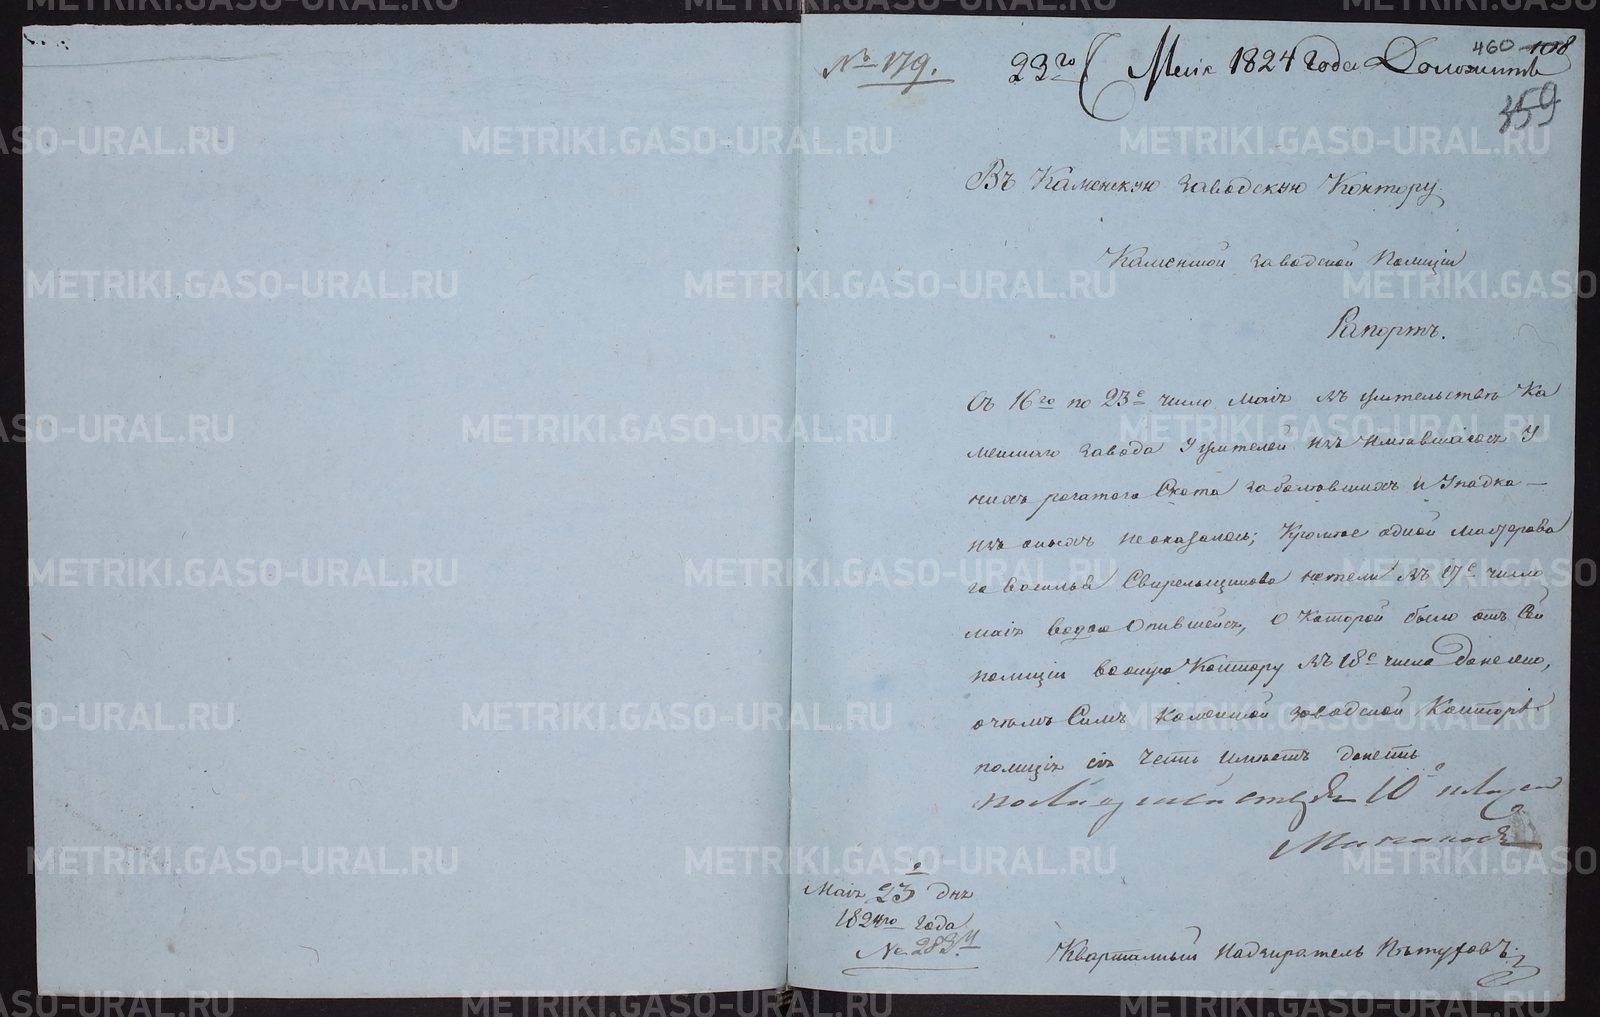 № 179.
23го Маія 1824 года Доложить
460 108
459
Въ Каменскую заводскую Контору
Каменской заводской Полиціи
Рапортъ.
Съ 16го по 23е число маія въ жительствѣ Ка
менскаго завода У жителей изъ имѣвшагося У
нихъ рогатого Скота заболѣвшихъ и Упадка —
неоказалось; Кромѣ одной мастерова
го Василья Свирельщикова нетели въ 17е число
маія водою Опившейся, о Которой было отъ Сей
полиціи вооную Контору въ 18е число донесено,
очемъ Симъ Каменской заводской Конторѣ
полиція съ честь имѣетъ донесть
10
Маія 23 дня
1824го года
№ 283й
Квартальный Надзиратель Пѣтуховъ
METRIKI.GASO-URAL.RU